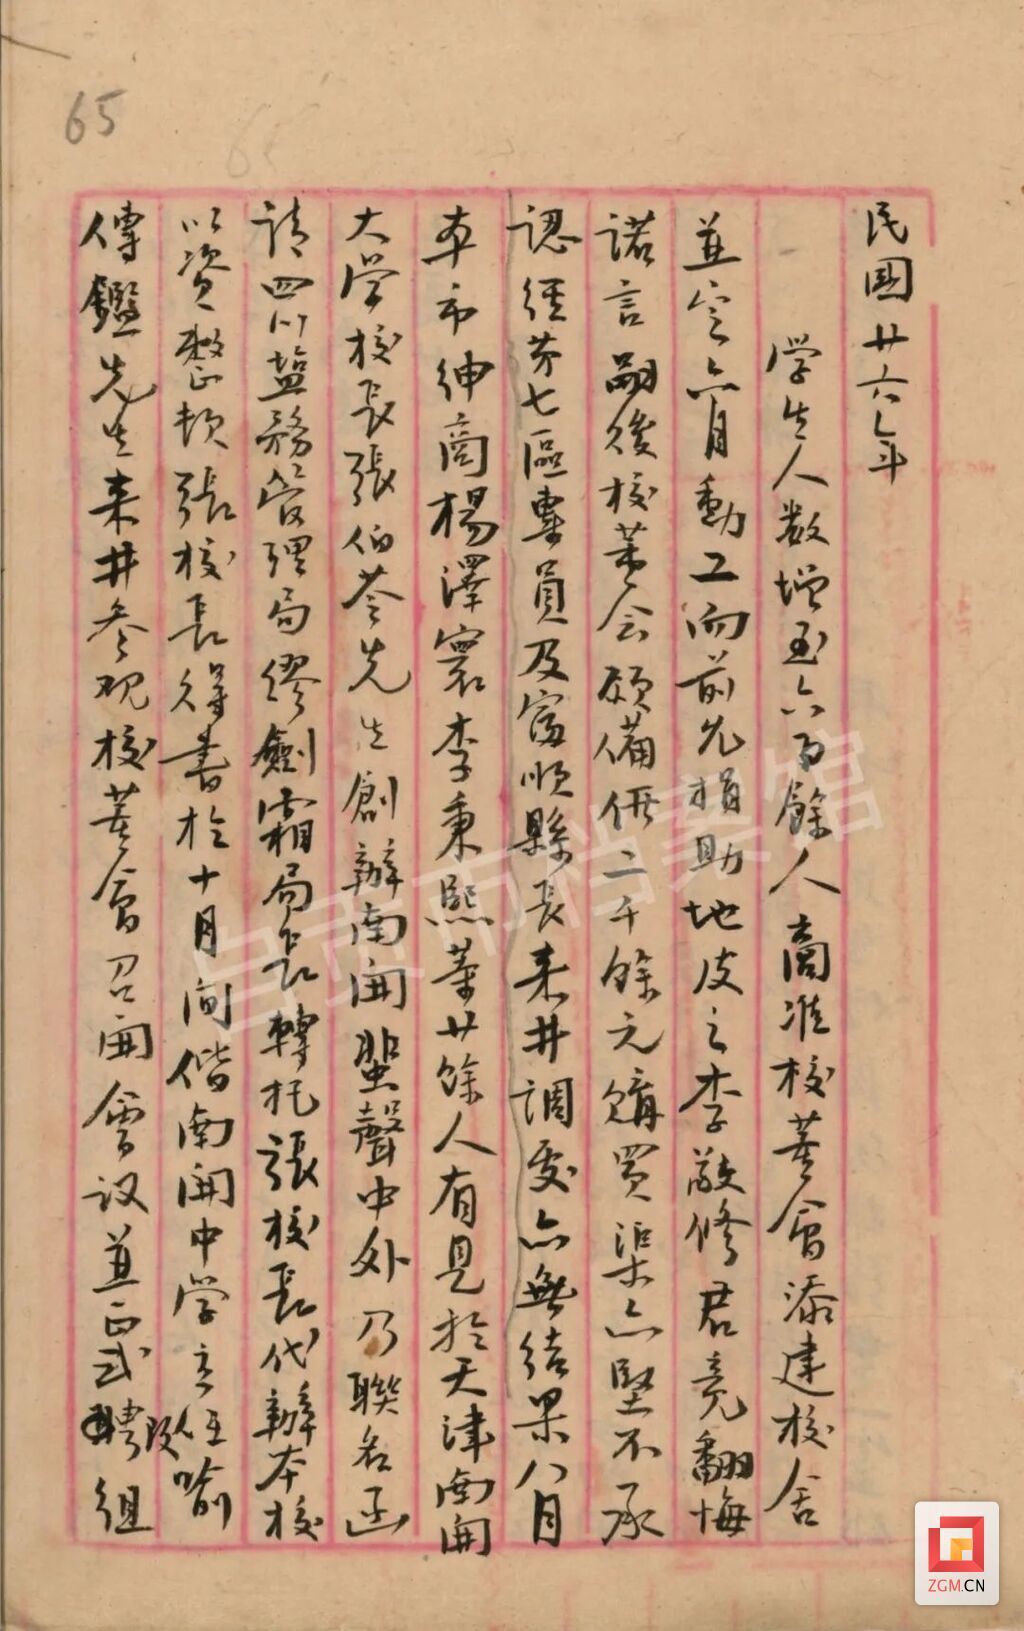 65
民國廿六年
学生人数增至六百餘人商准校董會添建校舍
並定六月動工而前允捐助地皮之李敬修君竟翻悔
諾言嗣後校董会願備價二千餘元購買渠亦堅不承
認經第七區專員及富順縣長来井調处亦無结果八月
本市绅商楊澤寰李秉熙等廿餘人有見於天津南開
大学校長張伯苓先生創辦南開蜚聲中外乃聯名函
請四川盐務管理局缪劍霜局長轉托張校長代辦本校
以資整頓張校長得書於十月间偕南開中学主任喻
傳鑑先生来井参观校董會召開會议並正式聘改組
自贡市档案馆
ZGM.CN